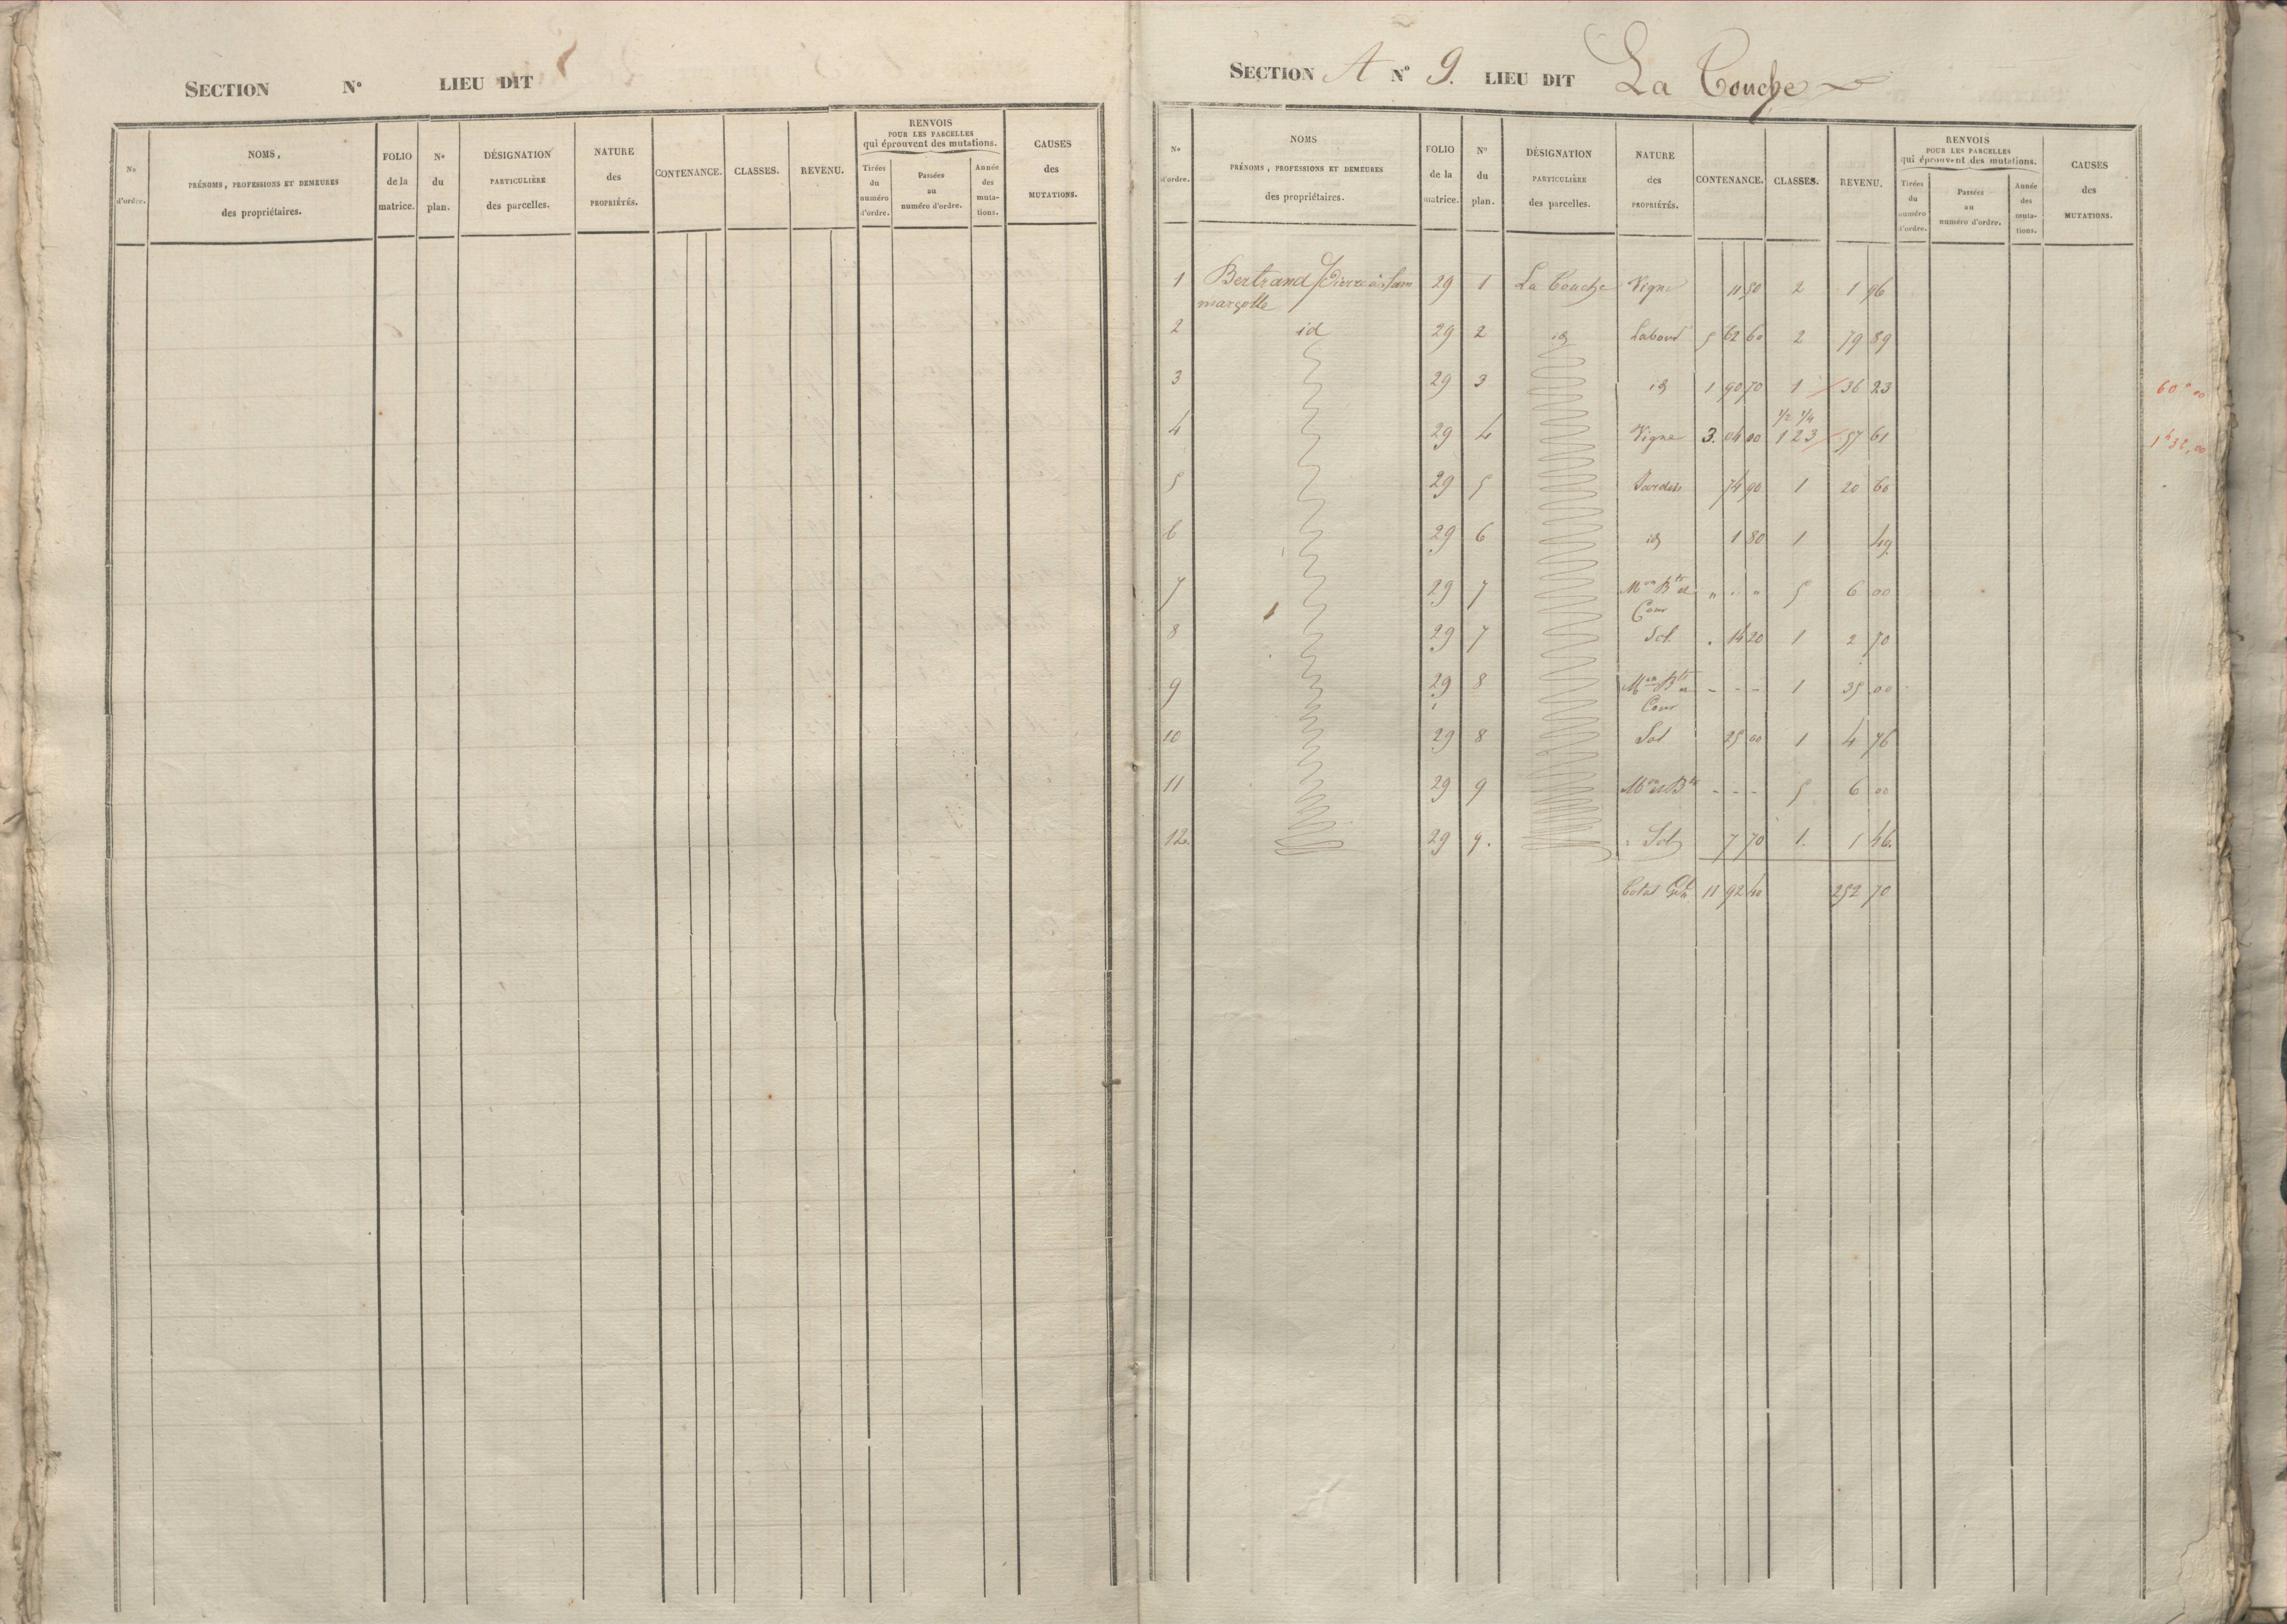 SECTION N° LIEU DIT
N° d'ordre.
NOMS, PRÉNOMS, PROFESSIONS ET DEMEURES des propriétaires.
FOLIO de la matrice.
N° du plan.
DÉSIGNATION PARTICULIÈRE des parcelles.
NATURE des PROPRIÉTÉS.
CONTENANCE.
CLASSES.
REVENU.
RENVOIS POUR LES PARCELLES qui éprouvent des mutations.
Tirées du numéro d'ordre.
Passées au numéro d'ordre.
Année des muta-tions.
CAUSES des MUTATIONS.
SECTION A N° 9. LIEU DIT La Touche
N° d'ordre.
NOMS PRÉNOMS, PROFESSIONS ET DEMEURES des propriétaires.
FOLIO de la matrice.
N° du plan.
DÉSIGNATION PARTICULIÈRE des parcelles.
NATURE des PROPRIÉTÉS.
CONTENANCE.
CLASSES.
REVENU.
RENVOIS POUR LES PARCELLES qui éprouvent des mutations.
Tirées du numéro d'ordre.
Passées au numéro d'ordre.
Année des muta-tions.
CAUSES des MUTATIONS.
1 Bertrand Pierre 29 1 La Touche Vigne 11 50 2 1 96
2 id 29 2 id Labour 5 62 60 2 79 89
3 29 3 id 1 90 70 1 36 23 60 00
1/2 1/4
4 29 4 Vigne 3. 04 00 1 2 3 57 61 1h 32, 00
5 29 5 Jardin 74 90 1 20 60
6 29 6 id 1 80 1 49
7 29 7 Mon Bts et Cour " " " 5 6 00
8 29 7 Sol. . 14 20 1 2 70
9 29 8 Mon Bts et Cour - - - 1 35 00
10 29 8 Sol 25 00 1 4 76
11 29 9 Mon et Bts - - - 5 6 00
12. 29 9. Sol 7 70 1. 1 46.
Total Gal 11 92 40 252 70